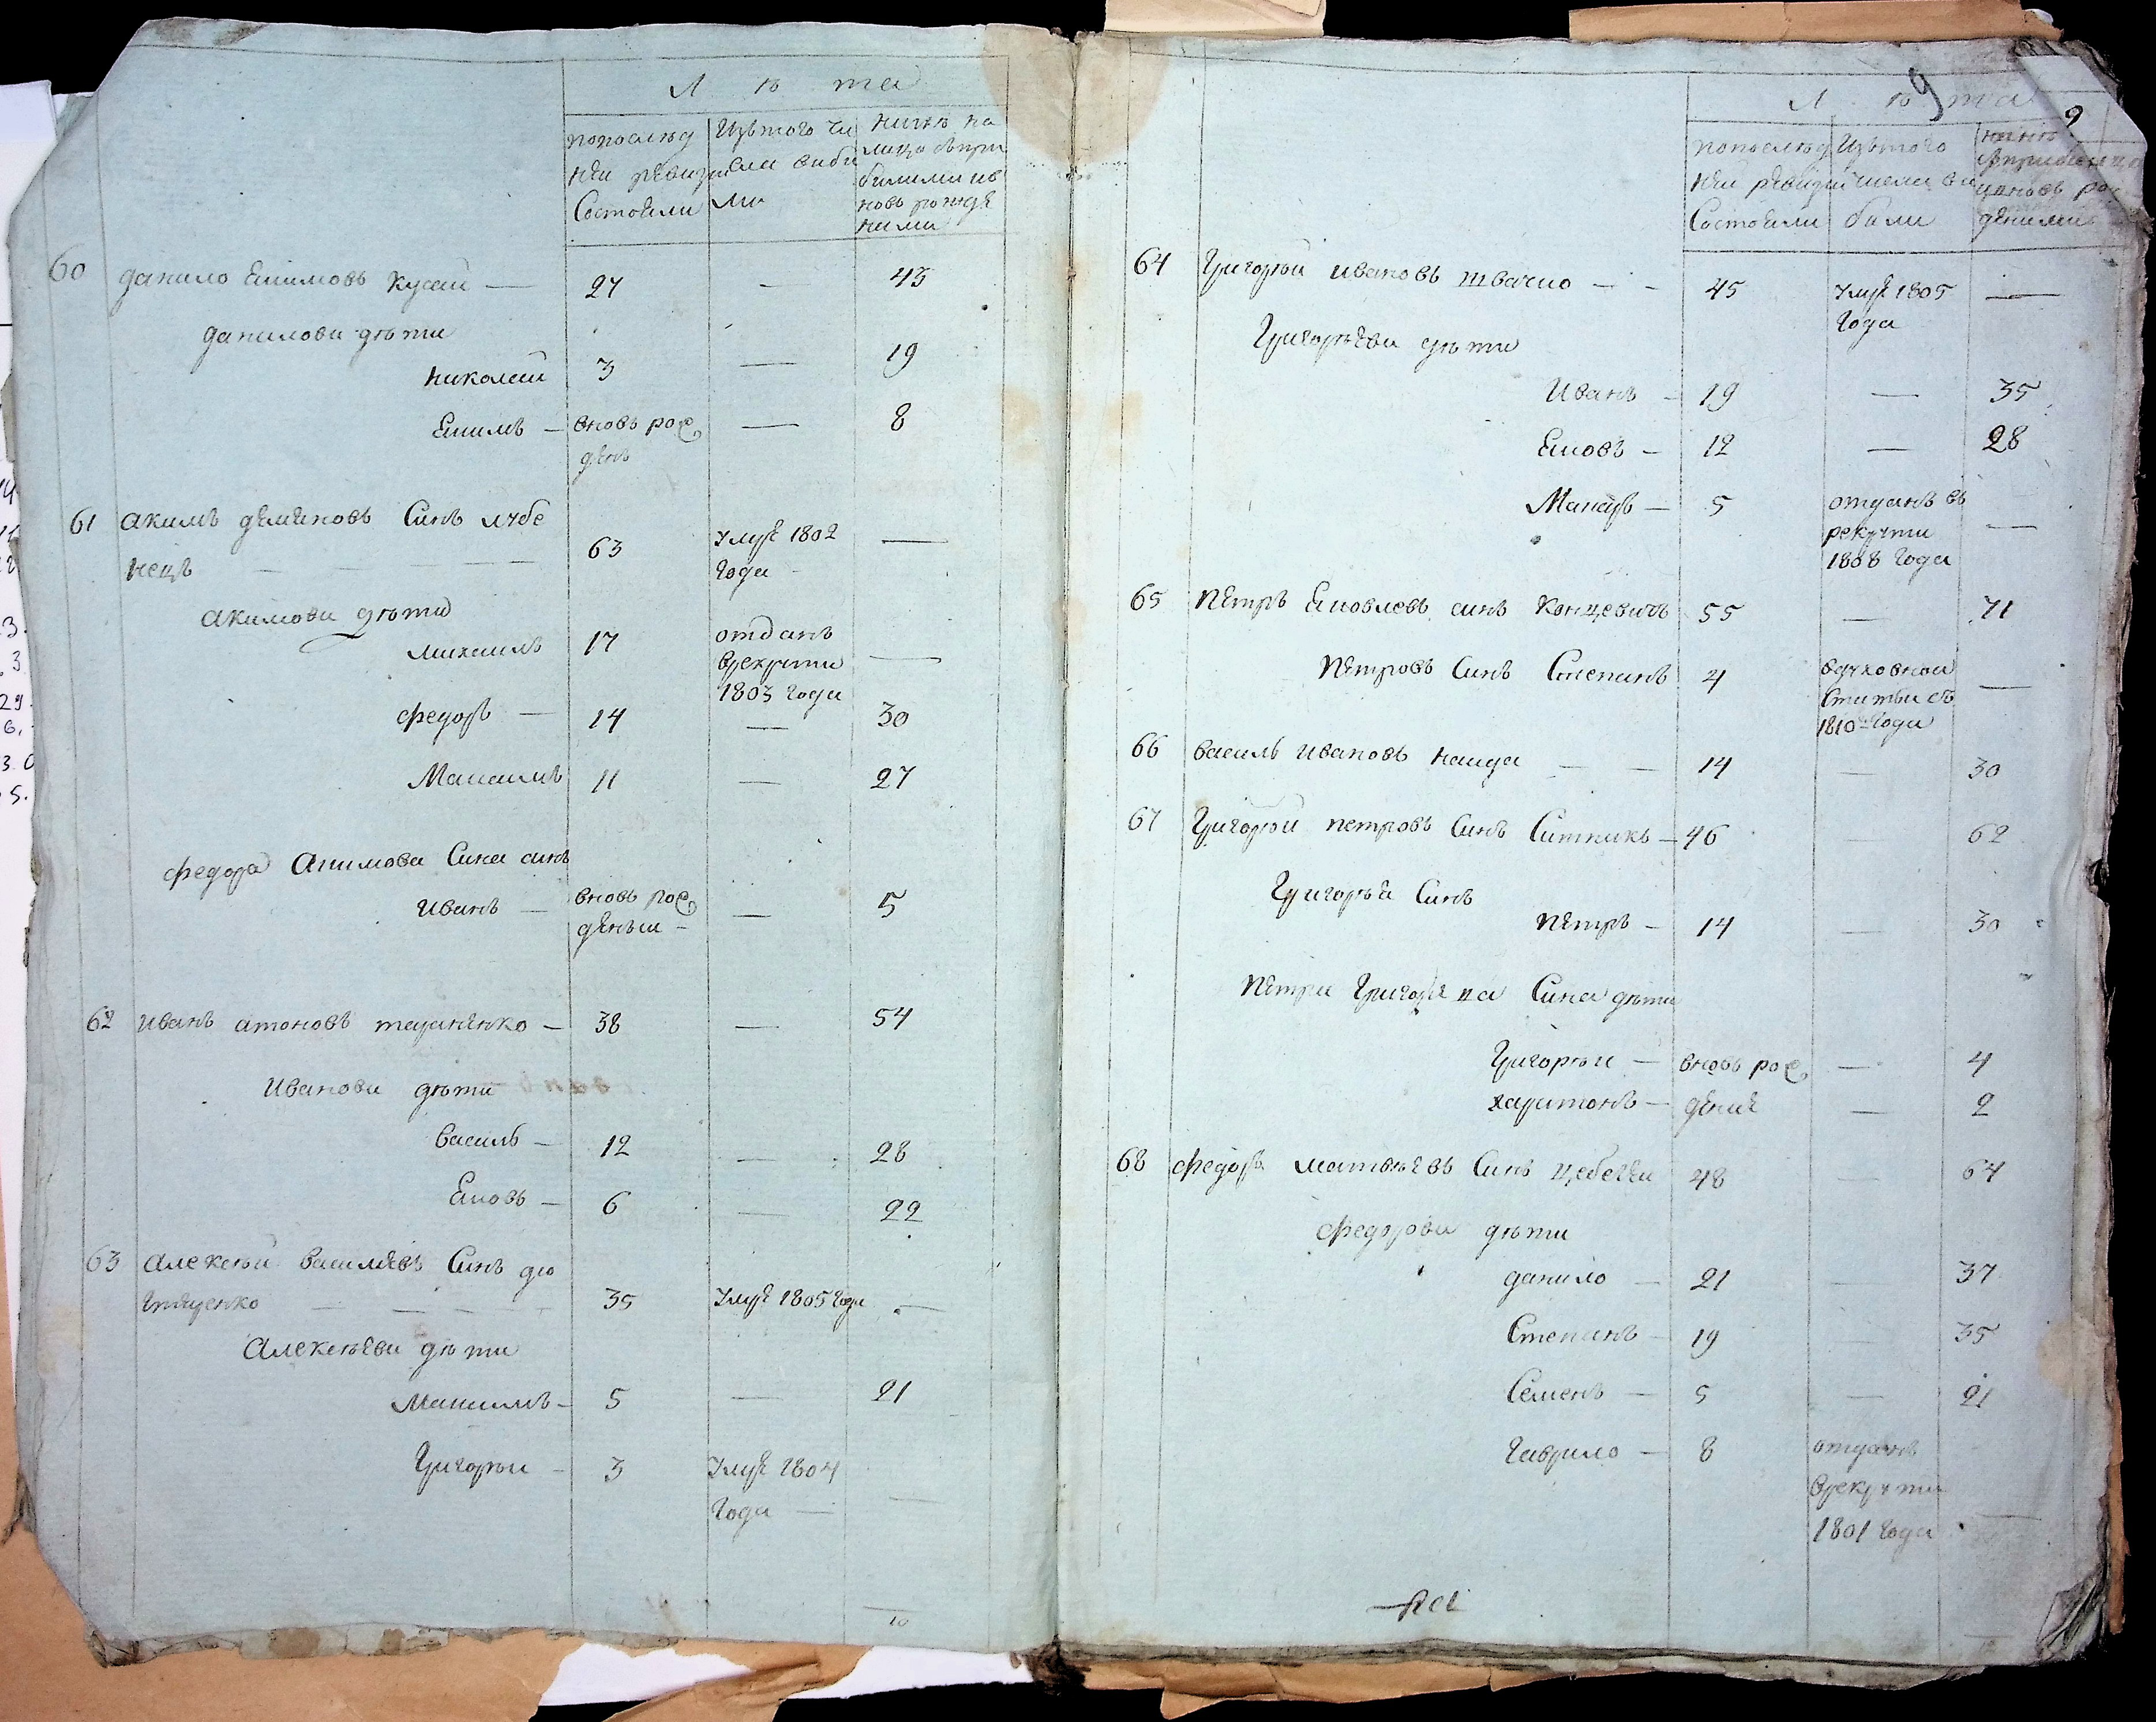 Л ѣ та
попослѣд
нѣи ревизи
Состояли
Изътого чи
сла виби
ли
нинѣ на
лицо съпри
билими ив
новь рожде
ними
60 данило Екимовъ Кусий — 27 — 43
даниловы дѣти
николай 3 — 19
Екимъ — вновь рож — 8
денъ
61 акимъ деменовъ Синъ лубе
нецъ — — — — 63 Умре 1802 —
года
акимови дѣти
михаилъ 17 отданъ
врекрути —
1803 года
федоръ — 14 — 30
Максимъ 11 — 27
федора Акимова Сина синъ
иванъ — вновь рож — 5
деньи —
62 иванъ атоновъ — 38 — 54
Иванови дѣти
василь — 12 — 28
Яковъ — 6 — 22
63 алексѣй василиевъ Синъ дю
35 Умре 1805 года —
алексѣеви дѣти
Максимъ — 5 — 21
Григорѣи — 3 Умре 1804
года — —
10
9
9
Л ѣ та
попослѣд
нѣи ревизіи
Состояли
Изътого
числа ви
били
нинѣ
дѣними
64 Григорѣй ивановъ швачко — — 45 Умре 1805 —
года
Григорѣеви дѣти
Иванъ — 19 — 35
Яковъ — 12 — 28
Макаръ — 5 отданъ въ
рекрути —
1808 года
65 Петръ Яковлевъ синъ Концевичъ 55 — 71
Петровъ Синъ Степанъ 4 вдуховной
Статьи съ —
1810 года
66 василь ивановъ наида — — 14 — 30
67 Григорѣй петровъ Синъ Ситникъ — 46 — 62
Григорѣа Синъ
Петръ — 14 — 30
Петра Григорева Сина дѣти
Григорѣи — вновь рож — 4
харитонъ — дение — 2
68 федоръ матвѣевъ Синъ 48 — 64
федорови дѣти
данило — 21 — 37
Степанъ — 19 — 35
Семенъ — 5 — 21
Гаврило — 8 отданъ
врекрути
1801 года —